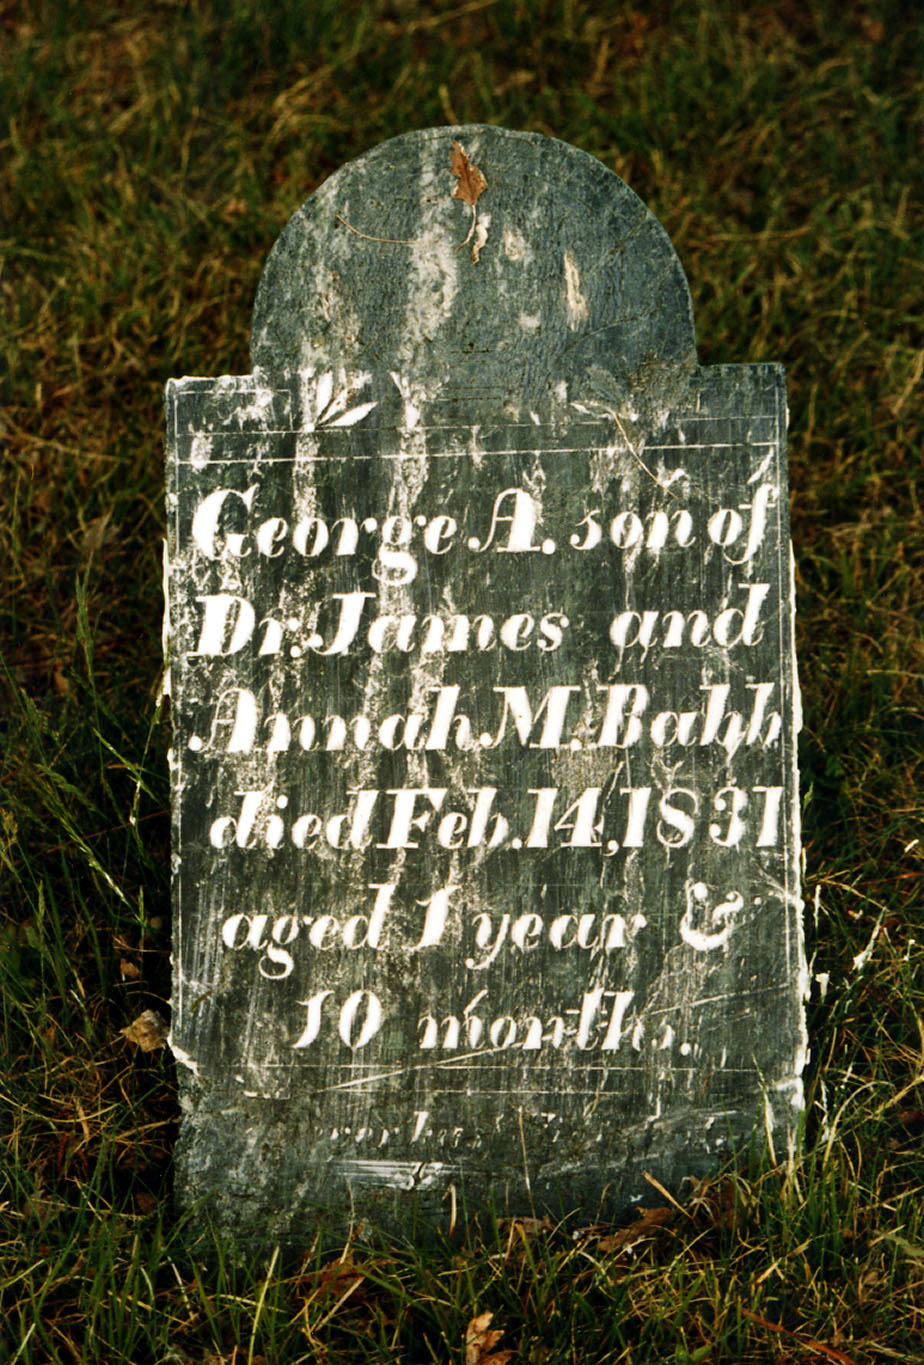 George A. son of
Dr. James and
Annah M. Babb
died Feb. 14, 1831
aged 1 year &
10 months.